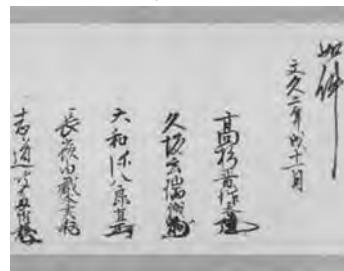 如件
文久二年戌十一月
高杉晋作
久坂玄瑞
大和弥八郎直
長嶺内蔵太
志道聞多